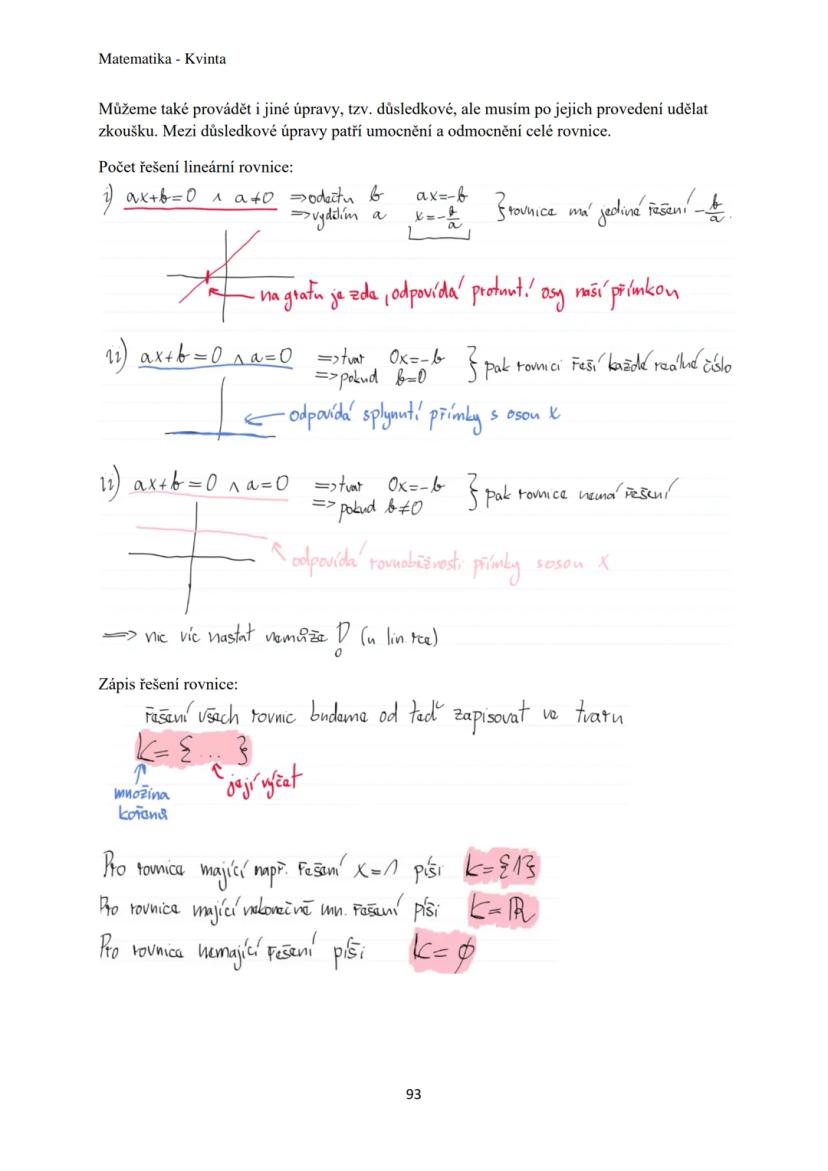 Matematika - Kvinta
Můžeme také provádět i jiné úpravy, tzv. důsledkové, ale musím po jejich provedení udělat
zkoušku. Mezi důsledkové úpravy patří umocnění a odmocnění celé rovnice.
Počet řešení lineární rovnice:
i) ax+b=0 ∧ a≠0 ⇒odečtu b ax=-b } rovnice má jediné řešení -b/a.
⇒vydělím a x=-b/a
na grafu je zde, odpovídá protnutí osy naší přímkou
ii) ax+b=0 ∧ a=0 ⇒tvar 0x=-b } pak rovnici řeší každé reálné číslo
⇒pokud b=0
odpovídá splynutí přímky s osou x
ii) ax+b=0 ∧ a=0 ⇒tvar 0x=-b } pak rovnice nemá řešení
⇒ pokud b≠0
odpovídá rovnoběžnosti přímky s osou x
⇒ nic víc nastat nemůže ! (u lin. rce)
Zápis řešení rovnice:
řešení všech rovnic budeme od teď zapisovat ve tvaru
K= { ... }
její výčet
množina
kořenů
Pro rovnice mající např. řešení x=1 píši K={1}
Pro rovnice mající nekonečně mn. řešení píši K=ℝ
Pro rovnice nemající řešení píši K=∅
93